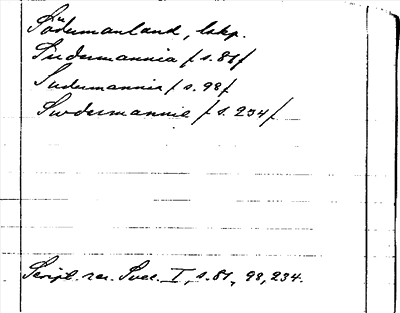 Södermanland, lskp.
Sudermannia / s. 81/
Sudermannia / s. 98/
Swdermannie / s. 234/
Script. rer. Svec. I, s. 81, 98, 234.